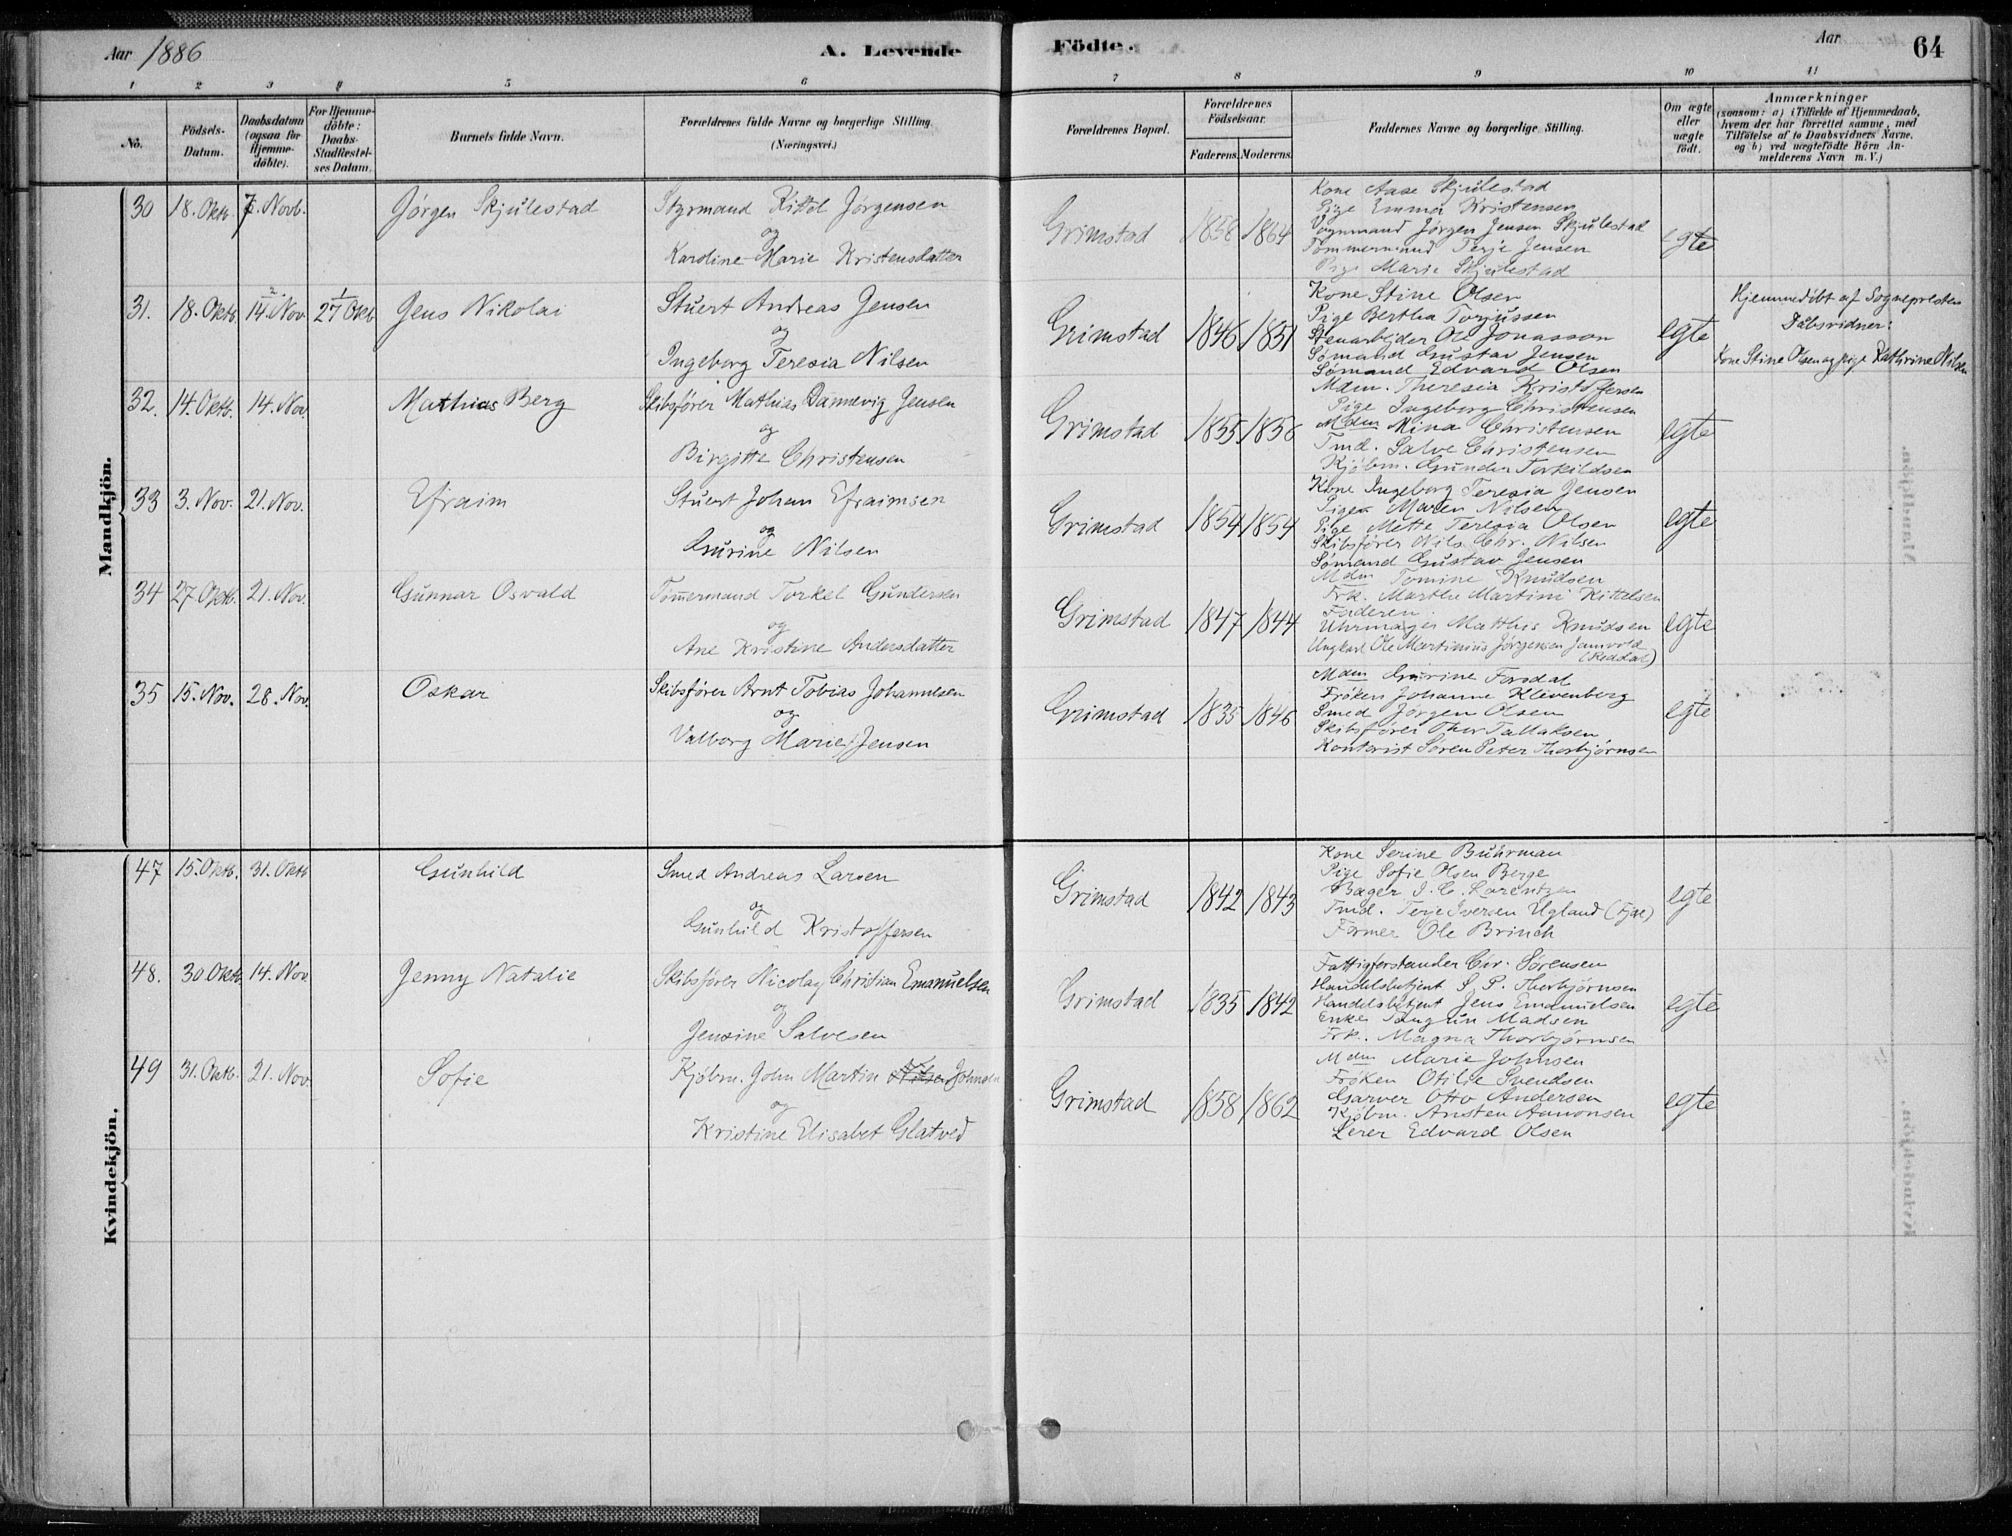 Aar 1886
A. Levende
Födte.
Aar
64
1 2 3 4 5 6 7 8 9 10 11
No.
Födsels-
Datum.
Daabsdatum
(ogsaa for
Hjemme-
döbte).
For Hjemme-
döbte:
Daabs-
Stadfæstel-
ses Datum.
Barnets fulde Navn.
Forældrenes fulde Navne og borgerlige Stilling.
(Næringsvei.)
Forældrenes Bopæl.
Forældrenes
Födselsaar.
Faderens. Moderens.
Faddernes Navne og borgerlige Stilling.
Om ægte
eller
uægte
födt.
Anmærkninger
(saasom: a) i Tilfælde af Hjemmedaab,
hvem der har forrettet samme, med
Tilföielse af to Daabsvidners Navne,
og b) ved uægtefödte Börn An-
melderens Navn m. V.)
Mandkjön.
30 18. Oktb. 7. Novb. Jørgen Skjulestad
Styrmand Kittel Jørgensen
og
Karoline Marie Kristensdatter
Grimstad 1858 1864
Kone Aase Skjulestad
Pige Emma Kristensen
Vognmand Jørgen Jensen Skjulestad
Tømmermand Terje Jensen
Pige Marie Skjulestad
egte
31. 18. Oktb. 2 14. Nov 1 27 Oktb Jens Nikolai
Stuert Andreas Jensen
og
Ingeborg Teresia Nilsen
Grimstad 1846 1851
Kone Stine Olsen
Pige Bertha Torjussen
Stenarbejder Ole Jonasson
Sømand Gustav Jensen
Sømand Edvard Olsen
egte
Hjemmedøbt af Sognepresten
Dåbsvidner:
Kone Stine Olsen og pige Kathrine Nilsen
32. 14. Oktb. 14. Nov. Mathias Berg
Skibsfører Mathias Dannevig Jensen
og
Birgitte Christensen
Grimstad 1855 1856
Mdm. Theresia Kristoffersen
Pige Ingeborg Christensen
Mdm Mina Christensen
Tmd. Salve Christensen
Kjøbm. Gunder Torkildsen
egte
33 3. Nov. 21. Nov. Efraim
Stuert Johan Efraimsen
og
Gurine Nilsen
Grimstad 1854 1854
Kone Ingeborg Teresia Jensen
Pigen Maren Nilsen
Pige Mette Teresia Olsen
Skibsfører Nils Chr. Nilsen
Sømand Gustav Jensen
egte
34 27 Oktb. 21. Nov. Gunnar Osvald
Tømmermand Torkel Gundersen
og
Ane Kristine Andersdatter
Grimstad 1847 1844
Mdm Tomine Knudsen
Frk. Marthe Martini Kittelsen
Faderen.
Uhrmager Mathis Knudsen
Ungkarl Ole Martinius Jørgensen
(Reddal)
egte
35 15. Nov. 28. Nov. Oskar
Skibsfører Arnt Tobias Johannesen
og
Valborg Marie Jensen
Grimstad 1835 1846
Mdm Gurine Forsdal
Frøken Johanne Klevenberg
Smed Jørgen Olsen
Skibsfører Thor Tallaksen
Kontorist Søren Peter Thorbjørnsen
egte
Kvindekjön.
47 15. Oktb. 31. Oktb Gunhild
Smed Andreas Larsen
og
Gunhild Kristoffersen
Grimstad 1842 1843
Kone Serine Buhrman
Pige Sofie Olsen Berge
Bager J. C. Lorentzen
Tmd. Terje Iversen Ugland (Fjæe)
Farmer Ole Brinch
egte
48. 30 Oktb. 14. Nov Jenny Natalie
Skibsfører Nicolay Christian Emanuelsen
og
Jensine Salvesen
Grimstad 1835 1842
Fattigforstander Chr. Sørensen
Handelsbetjent S. P. Thorbjørnsen
Handelsbetjent Jens Emanuelsen
Enke Tangun Madsen
Frk. Magna Thorbjørnsen
egte
49 31. Oktb. 21. Nov. Sofie
Kjøbm. John Martin Johnsen
og
Kristine Elisabet Glatved
Grimstad 1858 1862
Mdm Marie Johnsen
Frøken Otilie Svendsen
Garver Otto Andersen
Kjøbm. Ansten Aanonsen
Lerer Edvard Olsen
egte